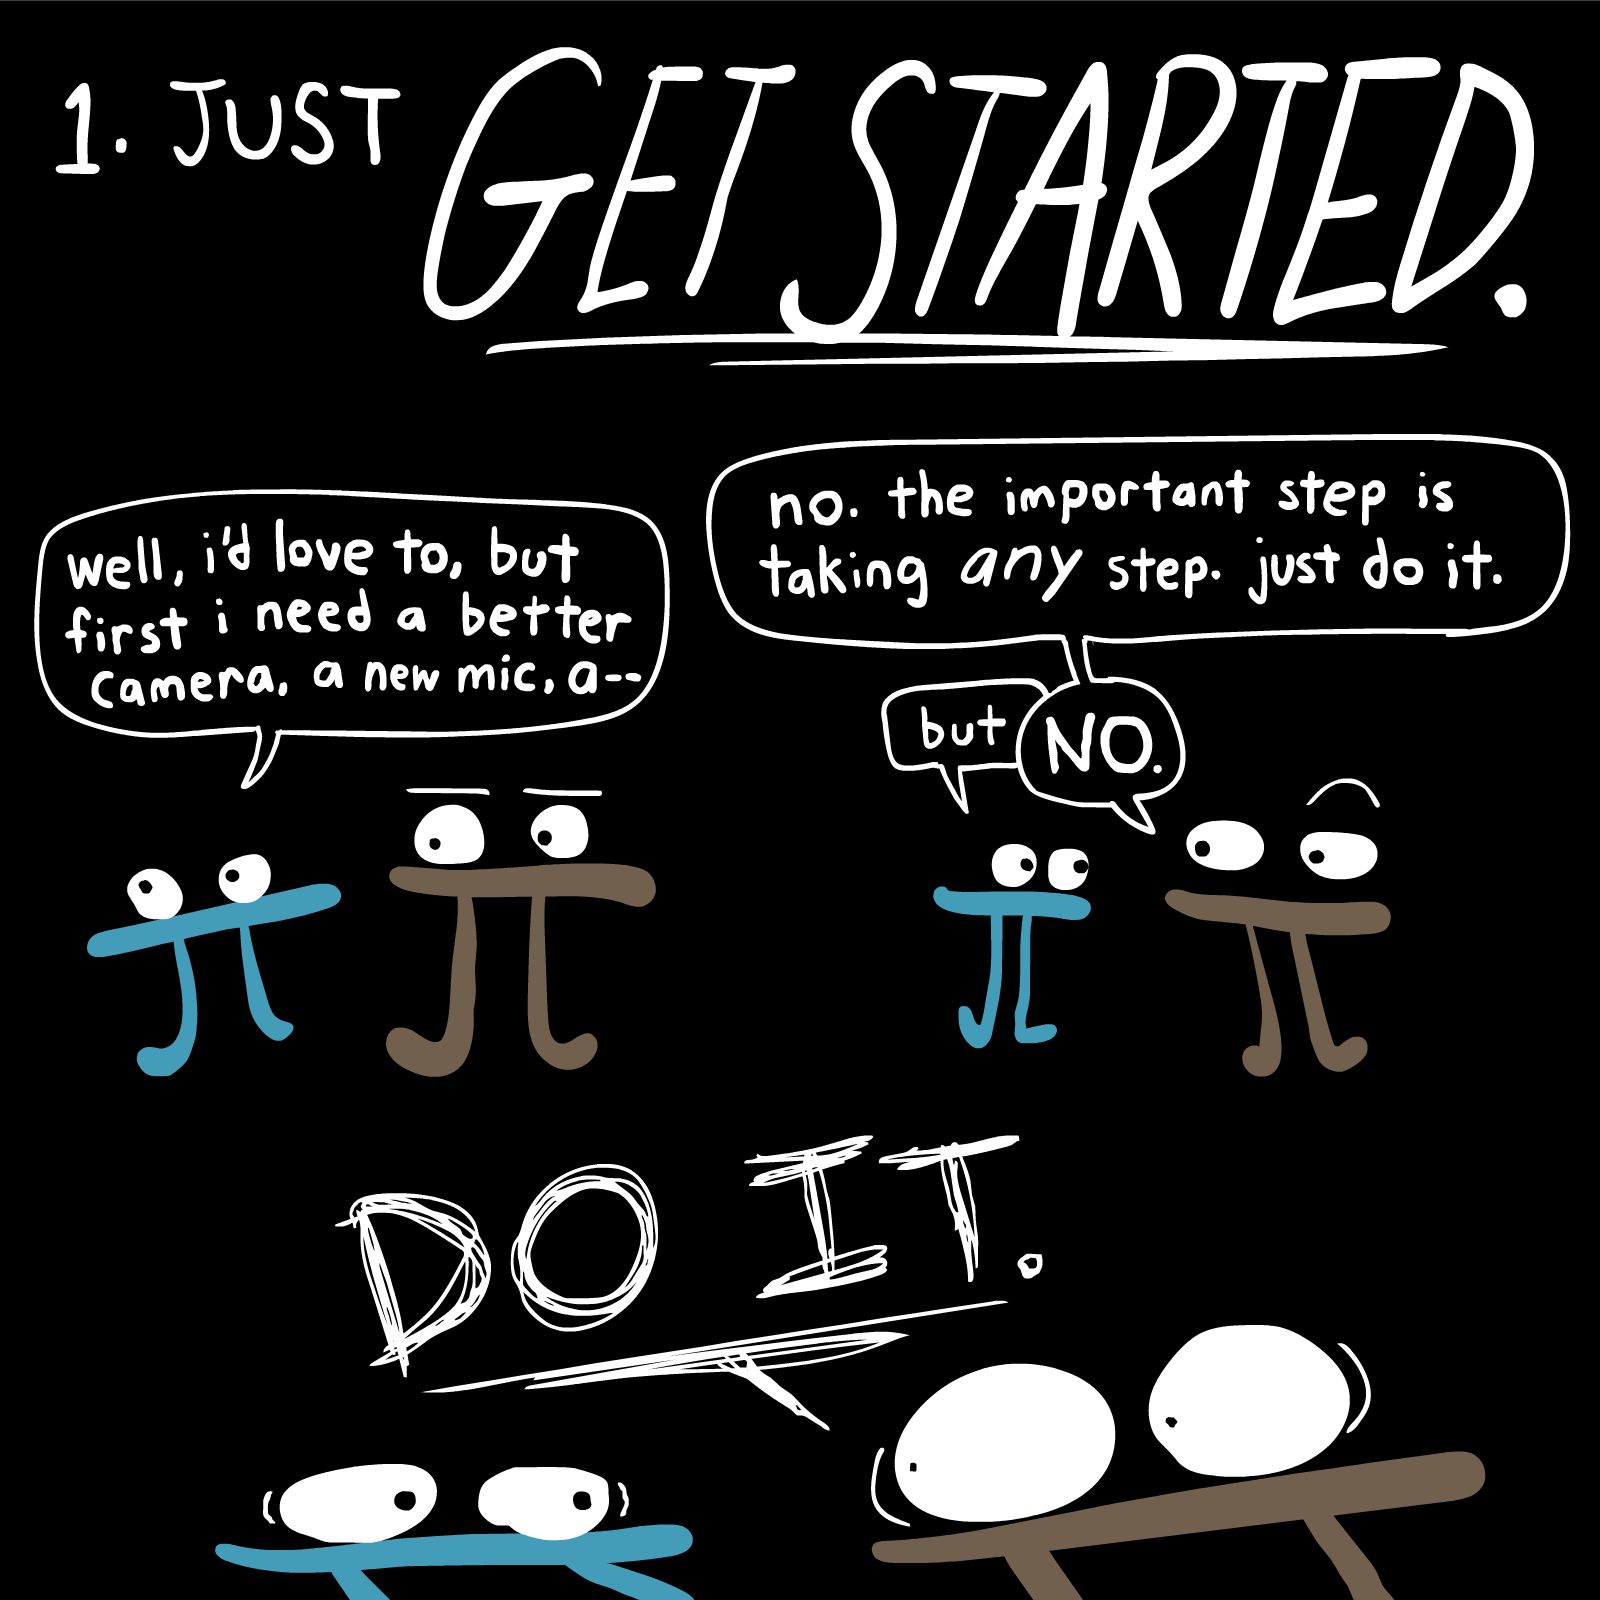 1. JUST GET STARTED.
well, i'd love to, but
first i need a better
camera, a new mic, a--
no. the important step is
taking any step. just do it.
but
NO.
DO IT.